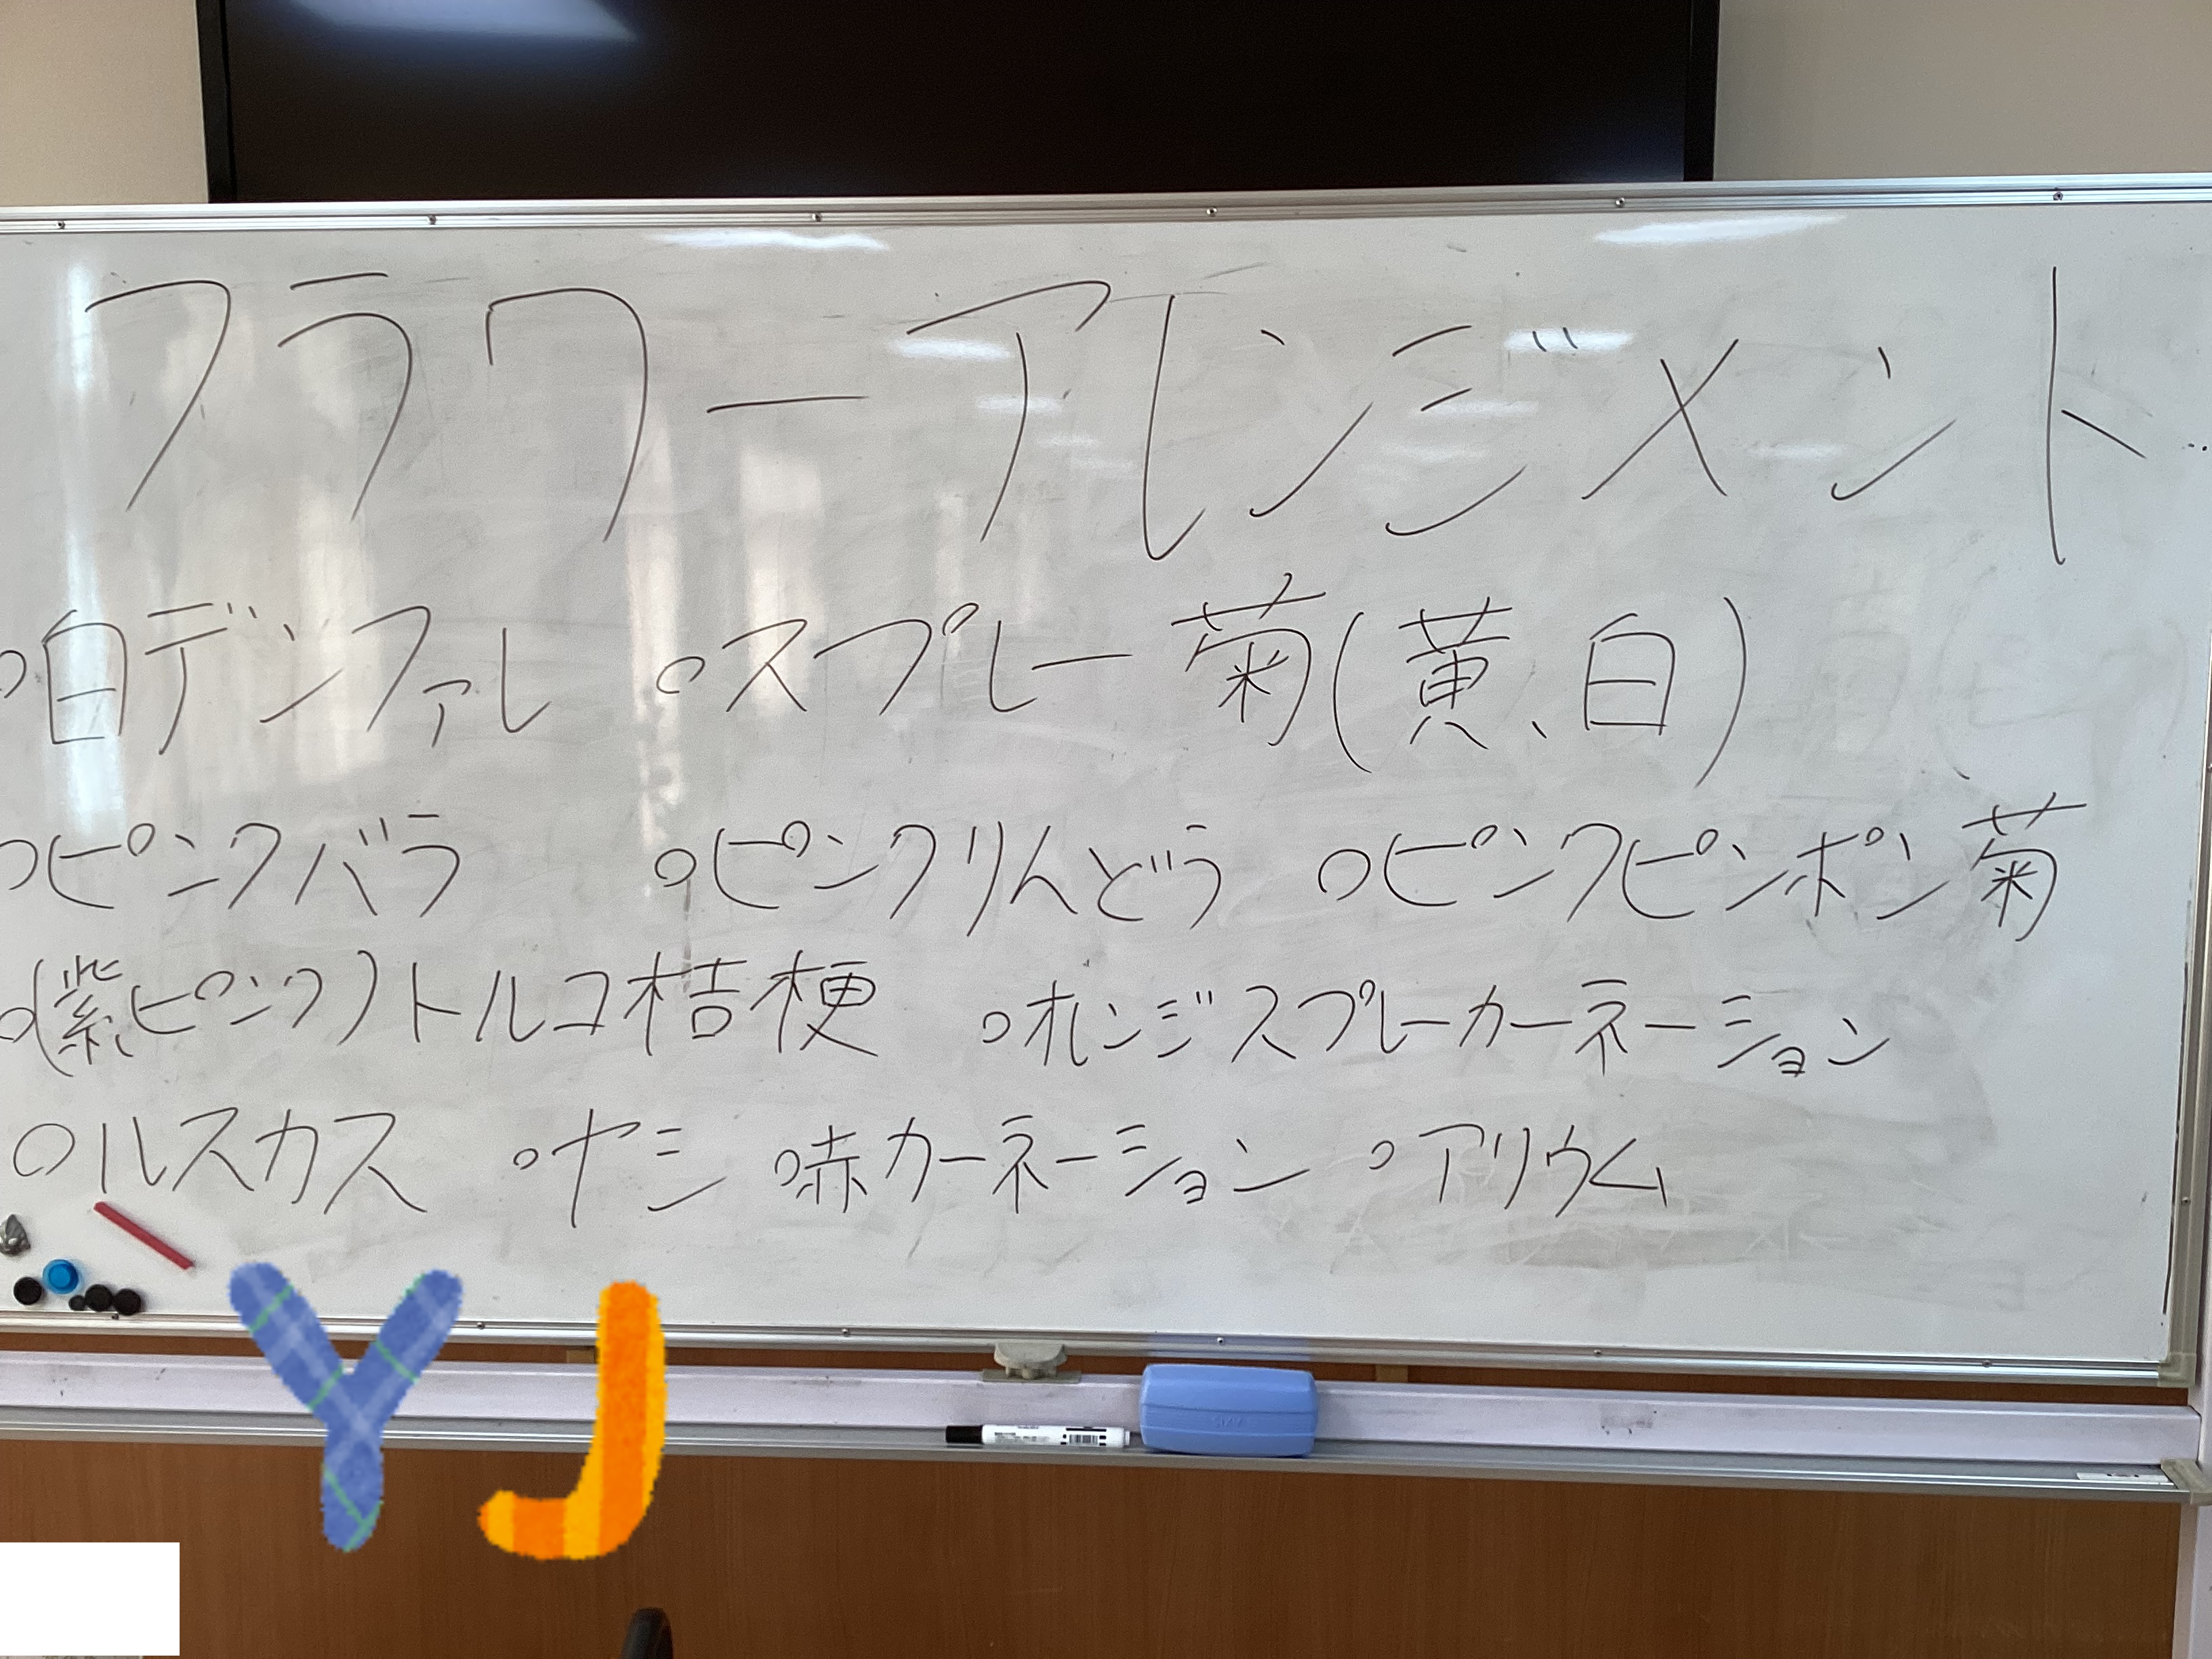 フラワーアレンジメント
○白デンファレ ○スプレー菊(黄、白)
○ピンクバラ ○ピンクりんどう ○ピンクピンポン菊
○(紫、ピンク)トルコ桔梗 ○オレンジスプレーカーネーション
○ルスカス ○ヤシ ○赤カーネーション ○アリウム
YJ